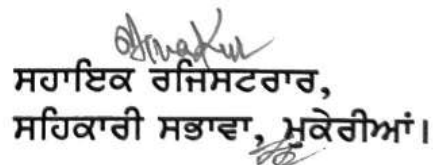 ਸਹਾਇਕ ਰਜਿਸਟਰਾਰ,
ਸਹਿਕਾਰੀ ਸਭਾਵਾ, ਮੁਕੇਰੀਆਂ।